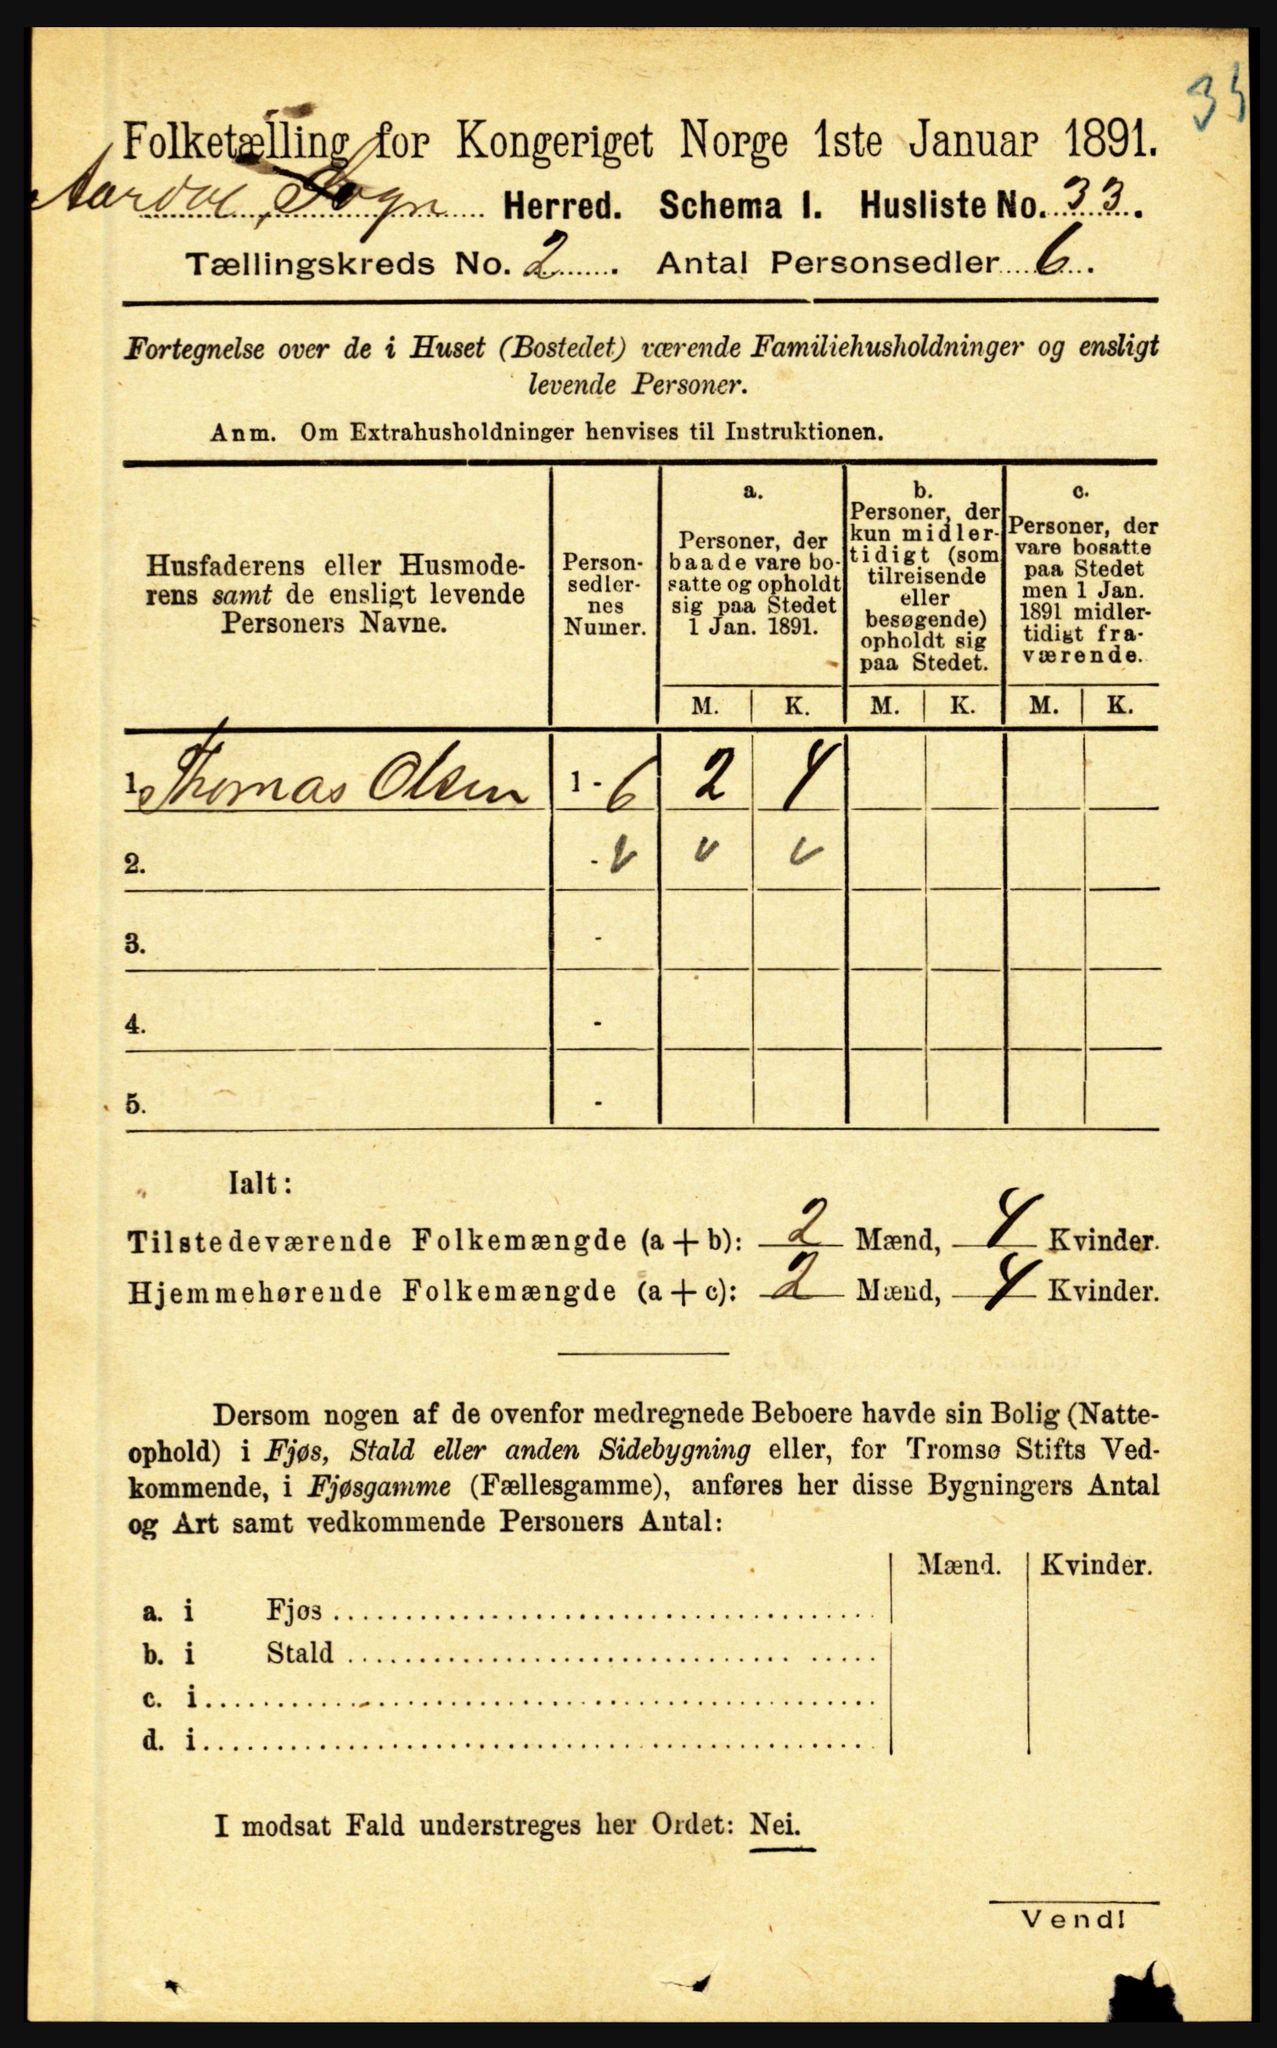 33
Folketælling for Kongeriget Norge 1ste Januar 1891.
Aardal, Sogn Herred. Schema I. Husliste No. 33.
Tællingskreds No. 2. Antal Personsedler 6.
Fortegnelse over de i Huset (Bostedet) værende Familiehusholdninger og ensligt
levende Personer.
Anm. Om Extrahusholdninger henvises til Instruktionen.
Husfaderens eller Husmode-
rens samt de ensligt levende
Personers Navne.
Person-
sedler-
nes
Numer.
a.
Personer, der
baade vare bo-
satte og opholdt
sig paa Stedet
1 Jan. 1891.
b.
Personer, der
kun midler-
tidigt (som
tilreisende
eller
besøgende)
opholdt sig
paa Stedet.
c.
Personer, der
vare bosatte
paa Stedet
men 1 Jan.
1891 midler-
tidigt fra-
værende.
M. K. M. K. M. K.
1. Thomas Olsen 1 - 6 2 4
2. -
3. -
4. -
5. -
Ialt:
Tilstedeværende Folkemængde (a + b): 2 Mænd, 4 Kvinder.
Hjemmehørende Folkemængde (a + c): 2 Mænd, 4 Kvinder.
Dersom nogen af de ovenfor medregnede Beboere havde sin Bolig (Natte-
ophold) i Fjøs, Stald eller anden Sidebygning eller, for Tromsø Stifts Ved-
kommende, i Fjøsgamme (Fællesgamme), anføres her disse Bygningers Antal
og Art samt vedkommende Personers Antal:
Mænd. Kvinder.
a. i Fjøs
b. i Stald
c. i
d. i
I modsat Fald understreges her Ordet: Nei.
Vend!